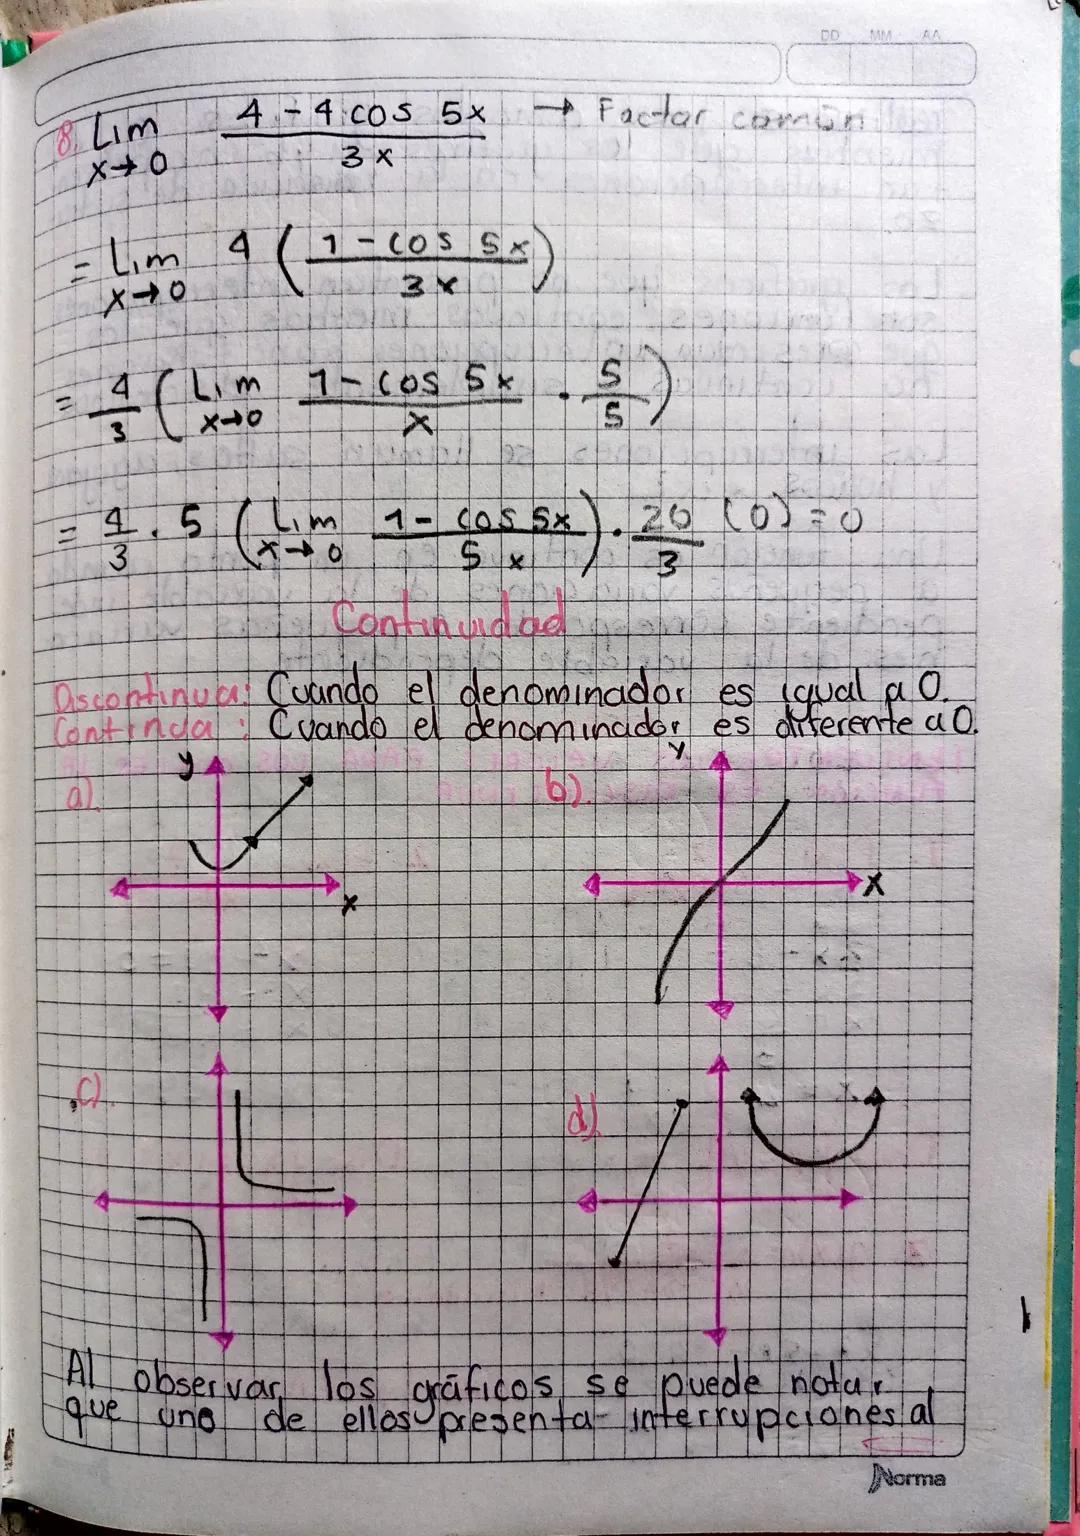 DD MM AA
8. Lim 4 - 4 cos 5x / 3x → Factor común
x→0
= Lim 4 ( 1 - cos 5x / 3x )
x→0
= 4/3 ( Lim 1 - cos 5x / x · 5/5 )
x→0
= 4/3 · 5 ( Lim 1 - cos 5x / 5x ) · 20/3 (0) = 0
x→0
Continuidad
Discontinua: Cuando el denominador es igual a 0.
Continua: Cuando el denominador es diferente a 0.
a). y x
b). y x
c)
d).
Al observar los gráficos se puede notar
que uno de ellos presenta interrupciones al
Norma